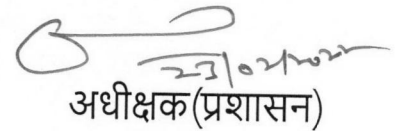 23/02/2022
अधीक्षक(प्रशासन)